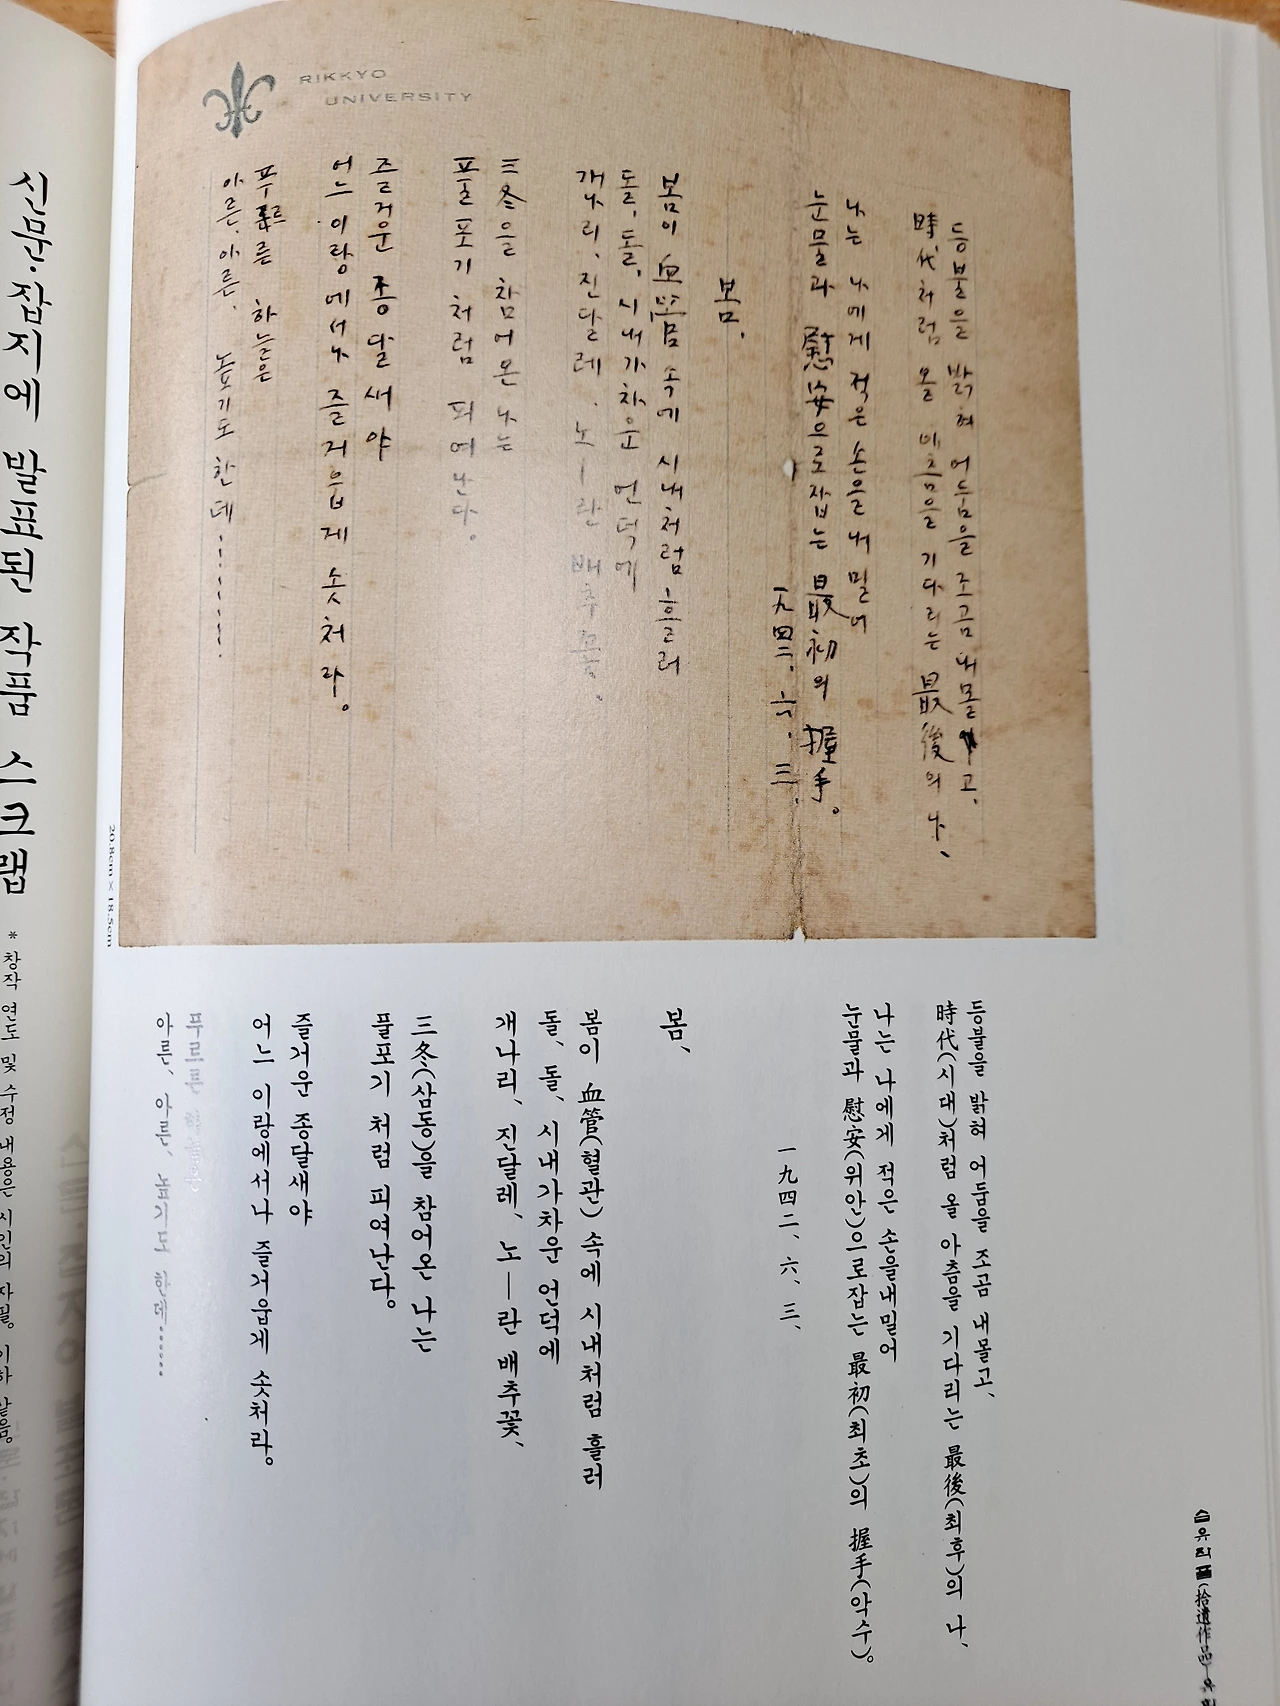 RIKKYO
UNIVERSITY
등불을 밝혀 어둠을 조곰 내몰고,
時代처럼 올 아츰을 기다리는 最後의 나、
나는 나에게 적은 손을 내밀어
눈물과 慰安으로잡는 最初의 握手。
一九四二、六、三、
봄、
봄이 血管 속에 시내처럼 흘러
돌, 돌, 시내가차운 언덕에
개나리、진달레、노—란 배추꽃、
三冬을 참어온 나는
풀포기 처럼 피여난다。
즐거운 종달새야
어느 이랑에서나 즐거웁게 솟처라。
푸르른 하늘은
아른、아른、높기도 한데………
20.8cm × 18.5cm
습유작품(拾遺作品)
등불을 밝혀 어둠을 조곰 내몰고、
時代(시대)처럼 올 아츰을 기다리는 最後(최후)의 나、
나는 나에게 적은 손을내밀어
눈물과 慰安(위안)으로잡는 最初(최초)의 握手(악수)。
一九四二、六、三、
봄、
봄이 血管(혈관) 속에 시내처럼 흘러
돌、돌、시내가차운 언덕에
개나리、진달레、노—란 배추꽃、
三冬(삼동)을 참어온 나는
풀포기 처럼 피여난다。
즐거운 종달새야
어느 이랑에서나 즐거웁게 솟처라。
푸르른 하늘은
아른、아른、높기도 한데……
신문·잡지에 발표된 작품 스크랩
* 창작 연도 및 수정 내용은 시인의 자필。 이하 같음。